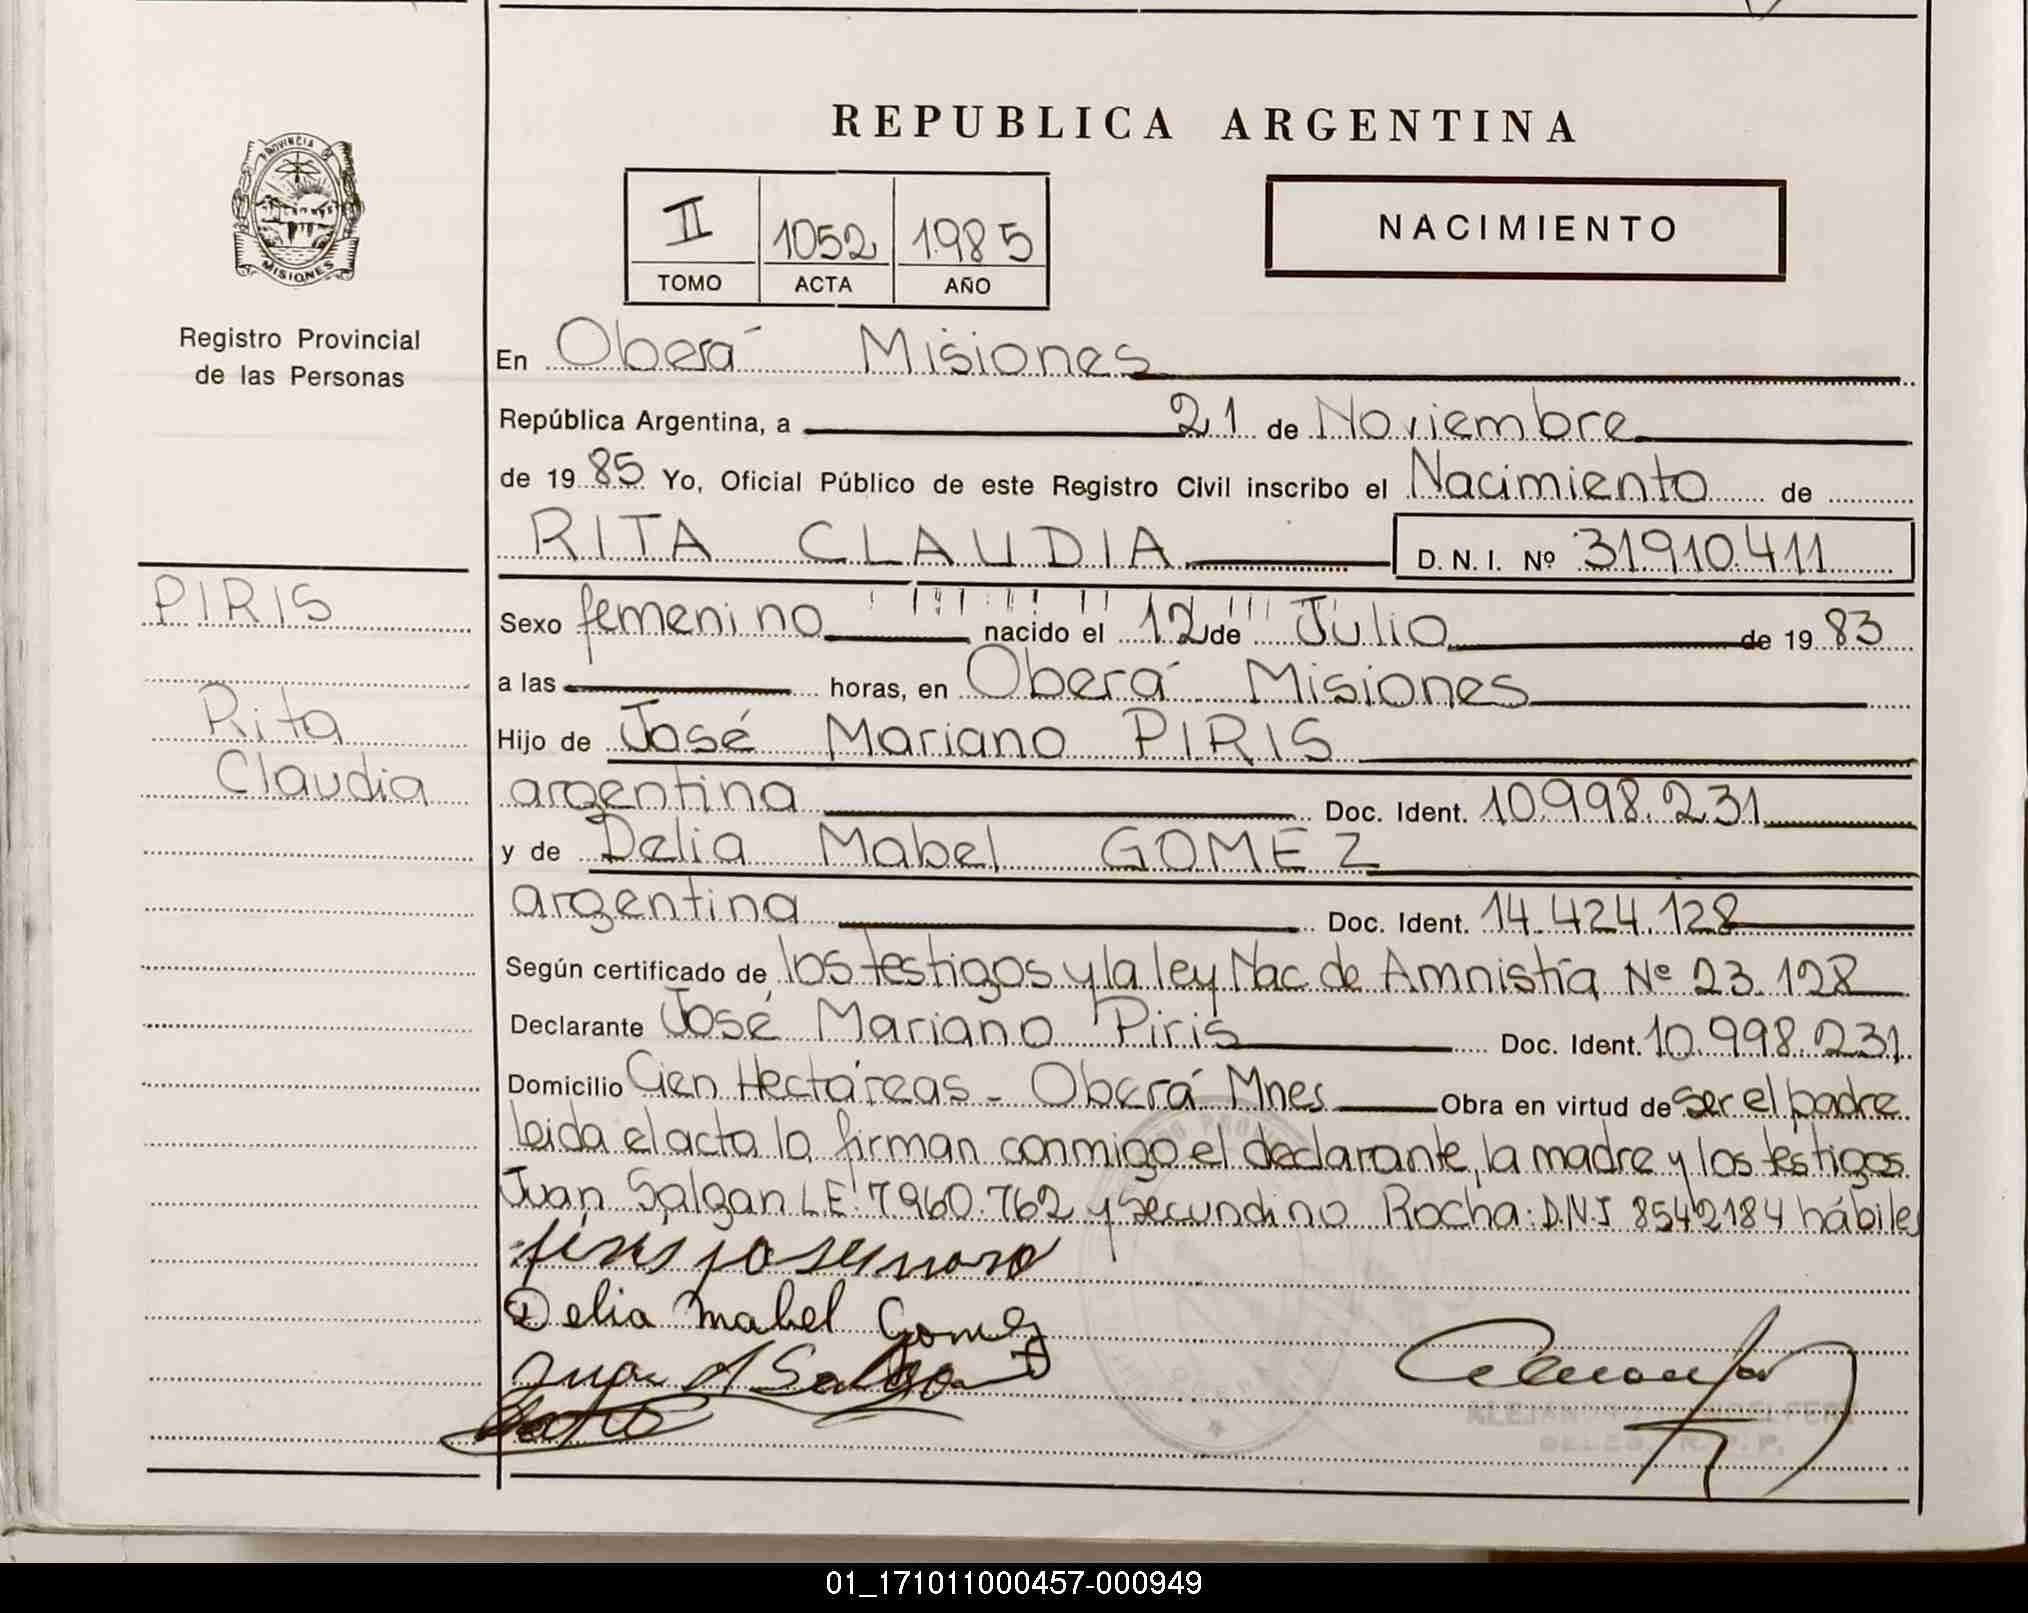 REPUBLICA ARGENTINA
PROVINCIA DE
MISIONES
Registro Provincial
de las Personas
II 1052 1985
TOMO ACTA AÑO
NACIMIENTO
En Oberá Misiones
República Argentina, a 21 de Noviembre
de 1985 Yo, Oficial Público de este Registro Civil inscribo el Nacimiento de
RITA CLAUDIA D. N. I. Nº 31910.411
PIRIS
Rita
Claudia
Sexo femenino nacido el 12 de Julio de 1983
a las horas, en Oberá Misiones
Hijo de José Mariano PIRIS
argentina Doc. Ident. 10.998.231
y de Delia Mabel GOMEZ
argentina Doc. Ident. 14.424.128
Según certificado de los testigos y la ley Nac de Amnistía Nº 23.128
Declarante José Mariano Piris Doc. Ident. 10.998.231
Domicilio Cien Hectáreas - Oberá Mnes Obra en virtud de ser el padre
leida el acta la firman conmigo el declarante, la madre y los testigos
Juan Salgan L.E: 7960.762 y Secundino Rocha: D.N.I 8542184 hábiles
Delia Mabel Gomez
Juan A Salgan
01_171011000457-000949